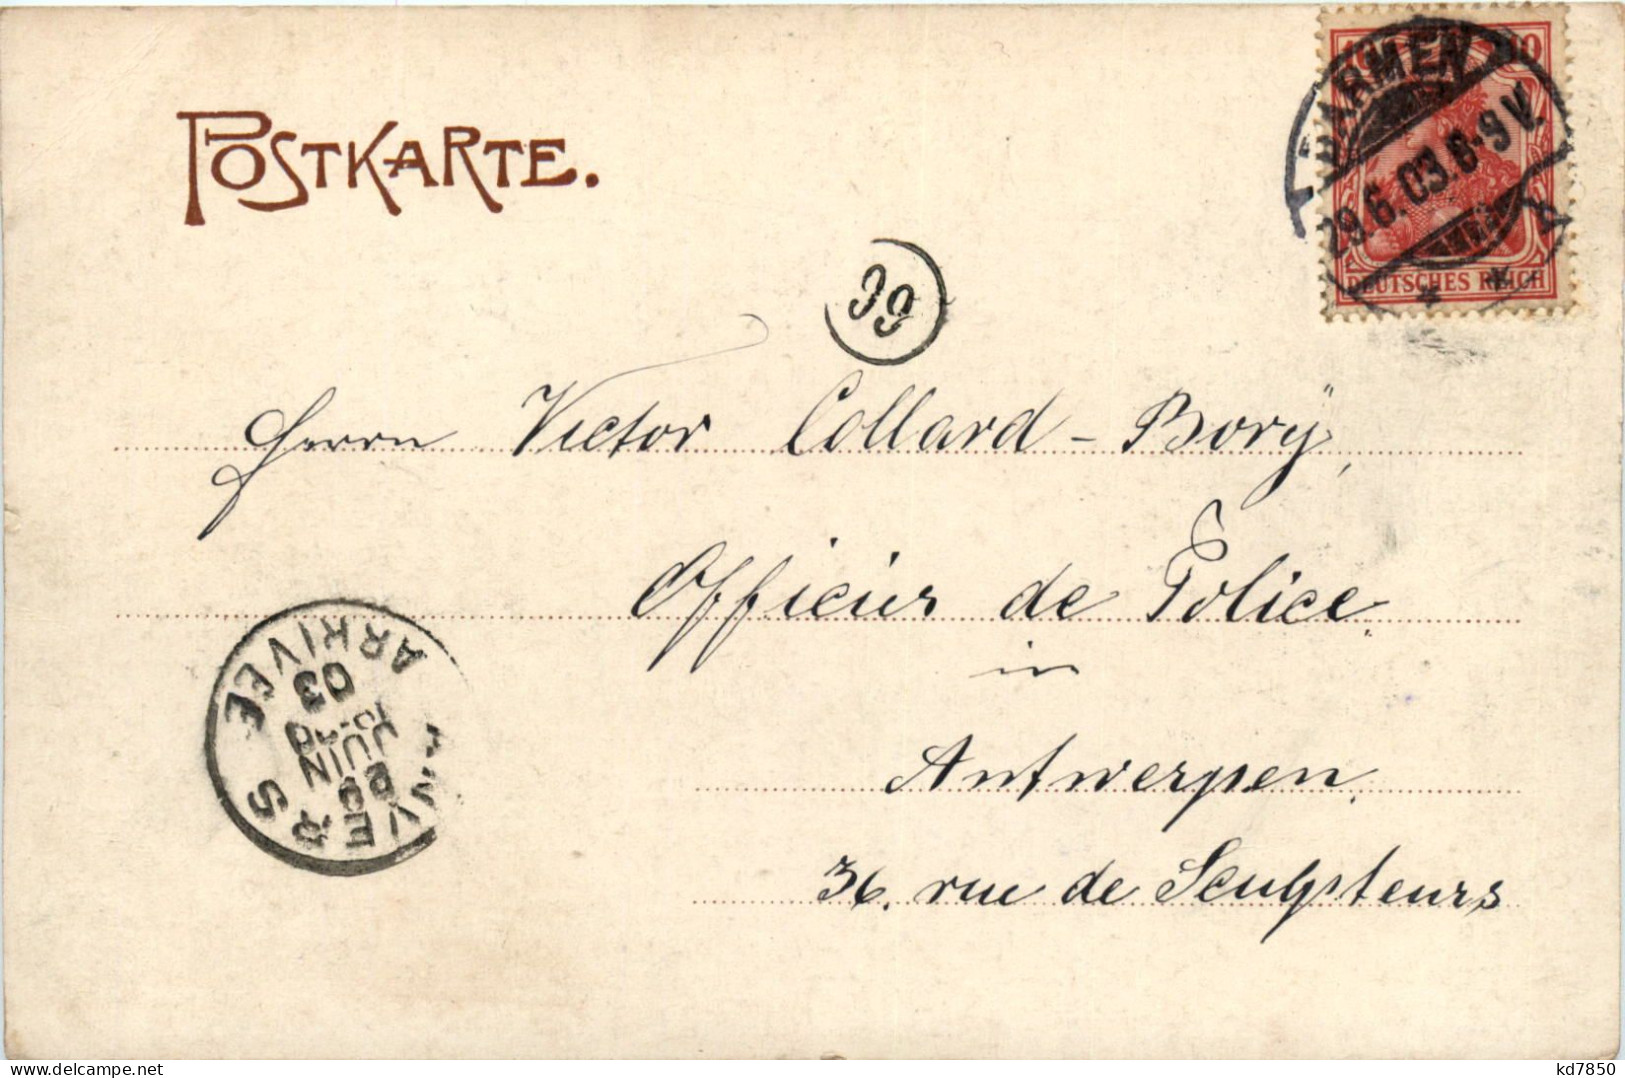 POSTKARTE.
10 10
BARMEN
29.6.03.8-9V.
DEUTSCHES REICH
99
Herrn Victor Collard-Borÿ,
Officier de Police
in
Antwerpen.
36. rue de Sculpteurs
ANVERS
JUIN
03
ARRIVEE
kd7850